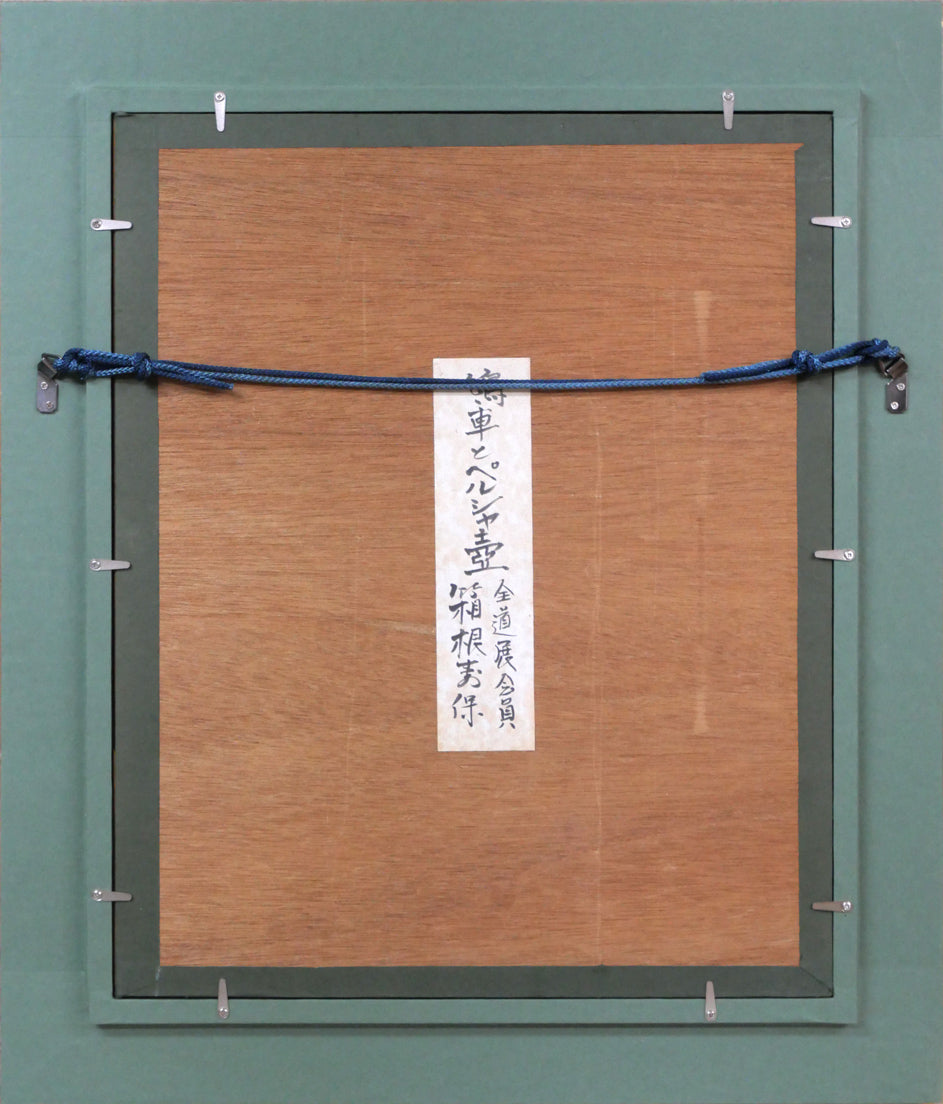 将軍とペルシャ壺
全道展会員
箱根寿保